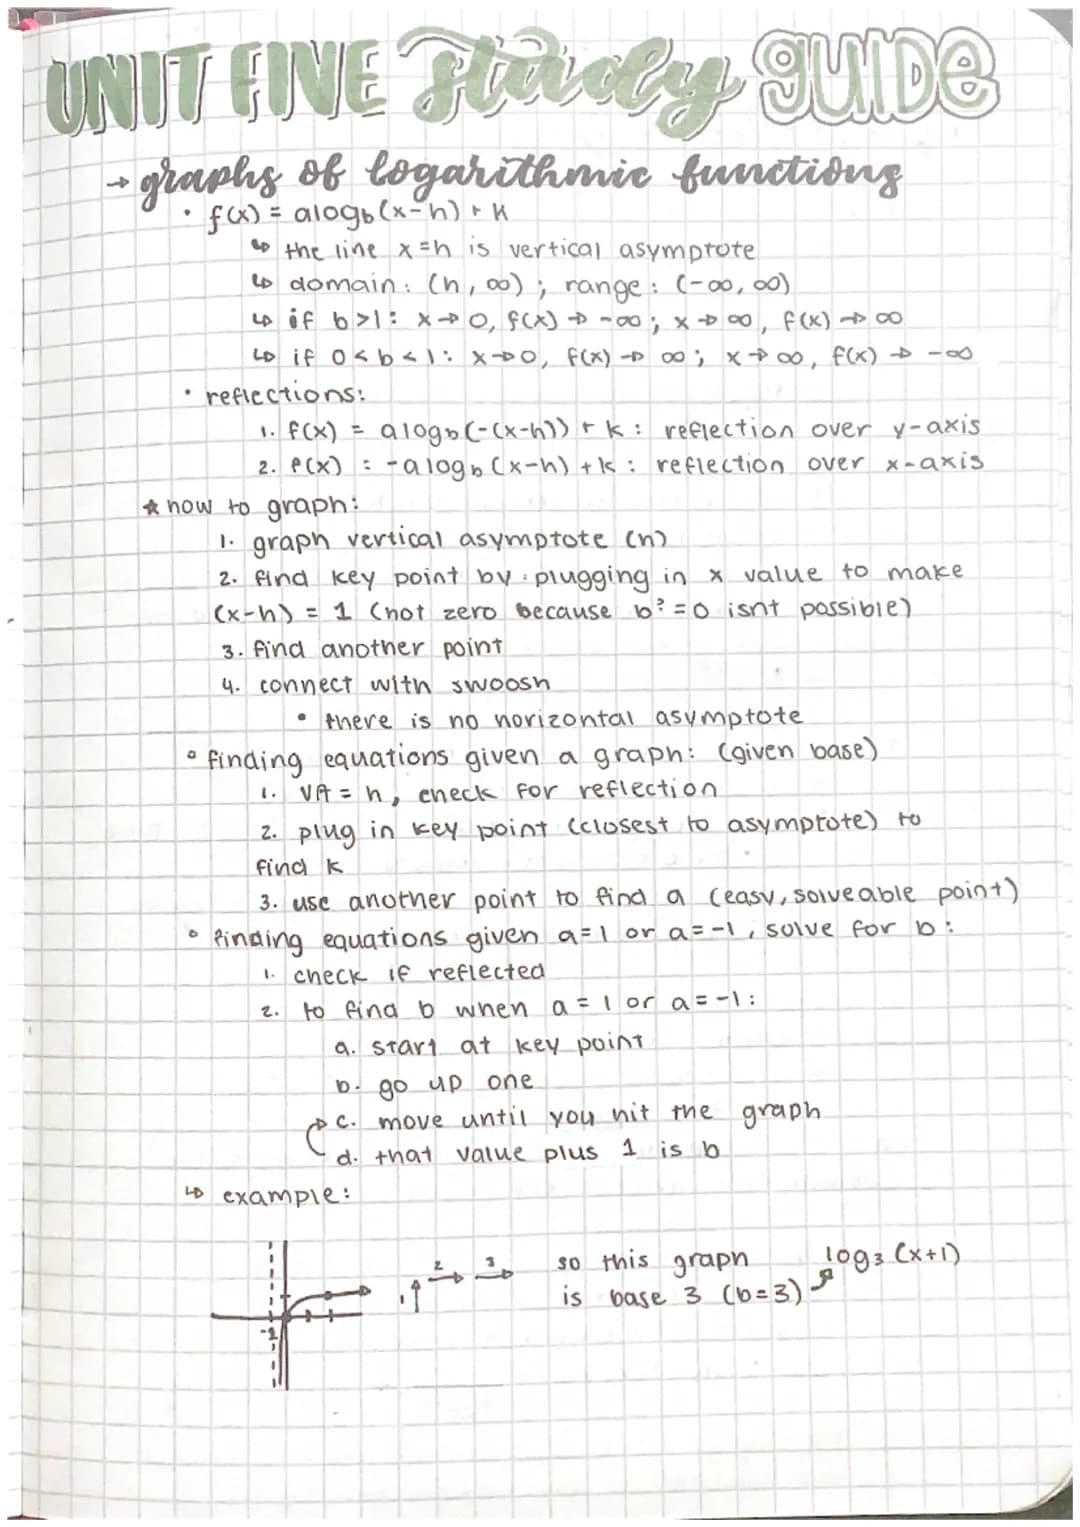 UNIT FIVE study guide
→ graphs of logarithmic functions
• f(x) = alog_b(x-h) + k
↳ the line x=h is vertical asymptote
↳ domain: (h, ∞) ; range: (-∞, ∞)
↳ if b>1: x→0, f(x) → -∞; x→∞, f(x) → ∞
↳ if 0<b<1: x→0, f(x) → ∞; x→∞, f(x) → -∞
• reflections:
1. f(x) = alog_b(-(x-h)) + k: reflection over y-axis
2. f(x) = -alog_b(x-h) + k: reflection over x-axis
★ how to graph:
1. graph vertical asymptote (h)
2. find key point by plugging in x value to make
(x-h) = 1 (not zero because b^? = 0 isnt possible)
3. find another point
4. connect with swoosh
• there is no horizontal asymptote
• finding equations given a graph: (given base)
1. VA = h, check for reflection
2. plug in key point (closest to asymptote) to
find k
3. use another point to find a (easy, solveable point)
• finding equations given a=1 or a=-1, solve for b:
1. check if reflected
2. to find b when a = 1 or a = -1:
a. start at key point
b. go up one
c. move until you hit the graph
d. that value plus 1 is b
↳ example:
-1
1 ↑ 2 → 3 →
so this graph log₃(x+1)
is base 3 (b=3)